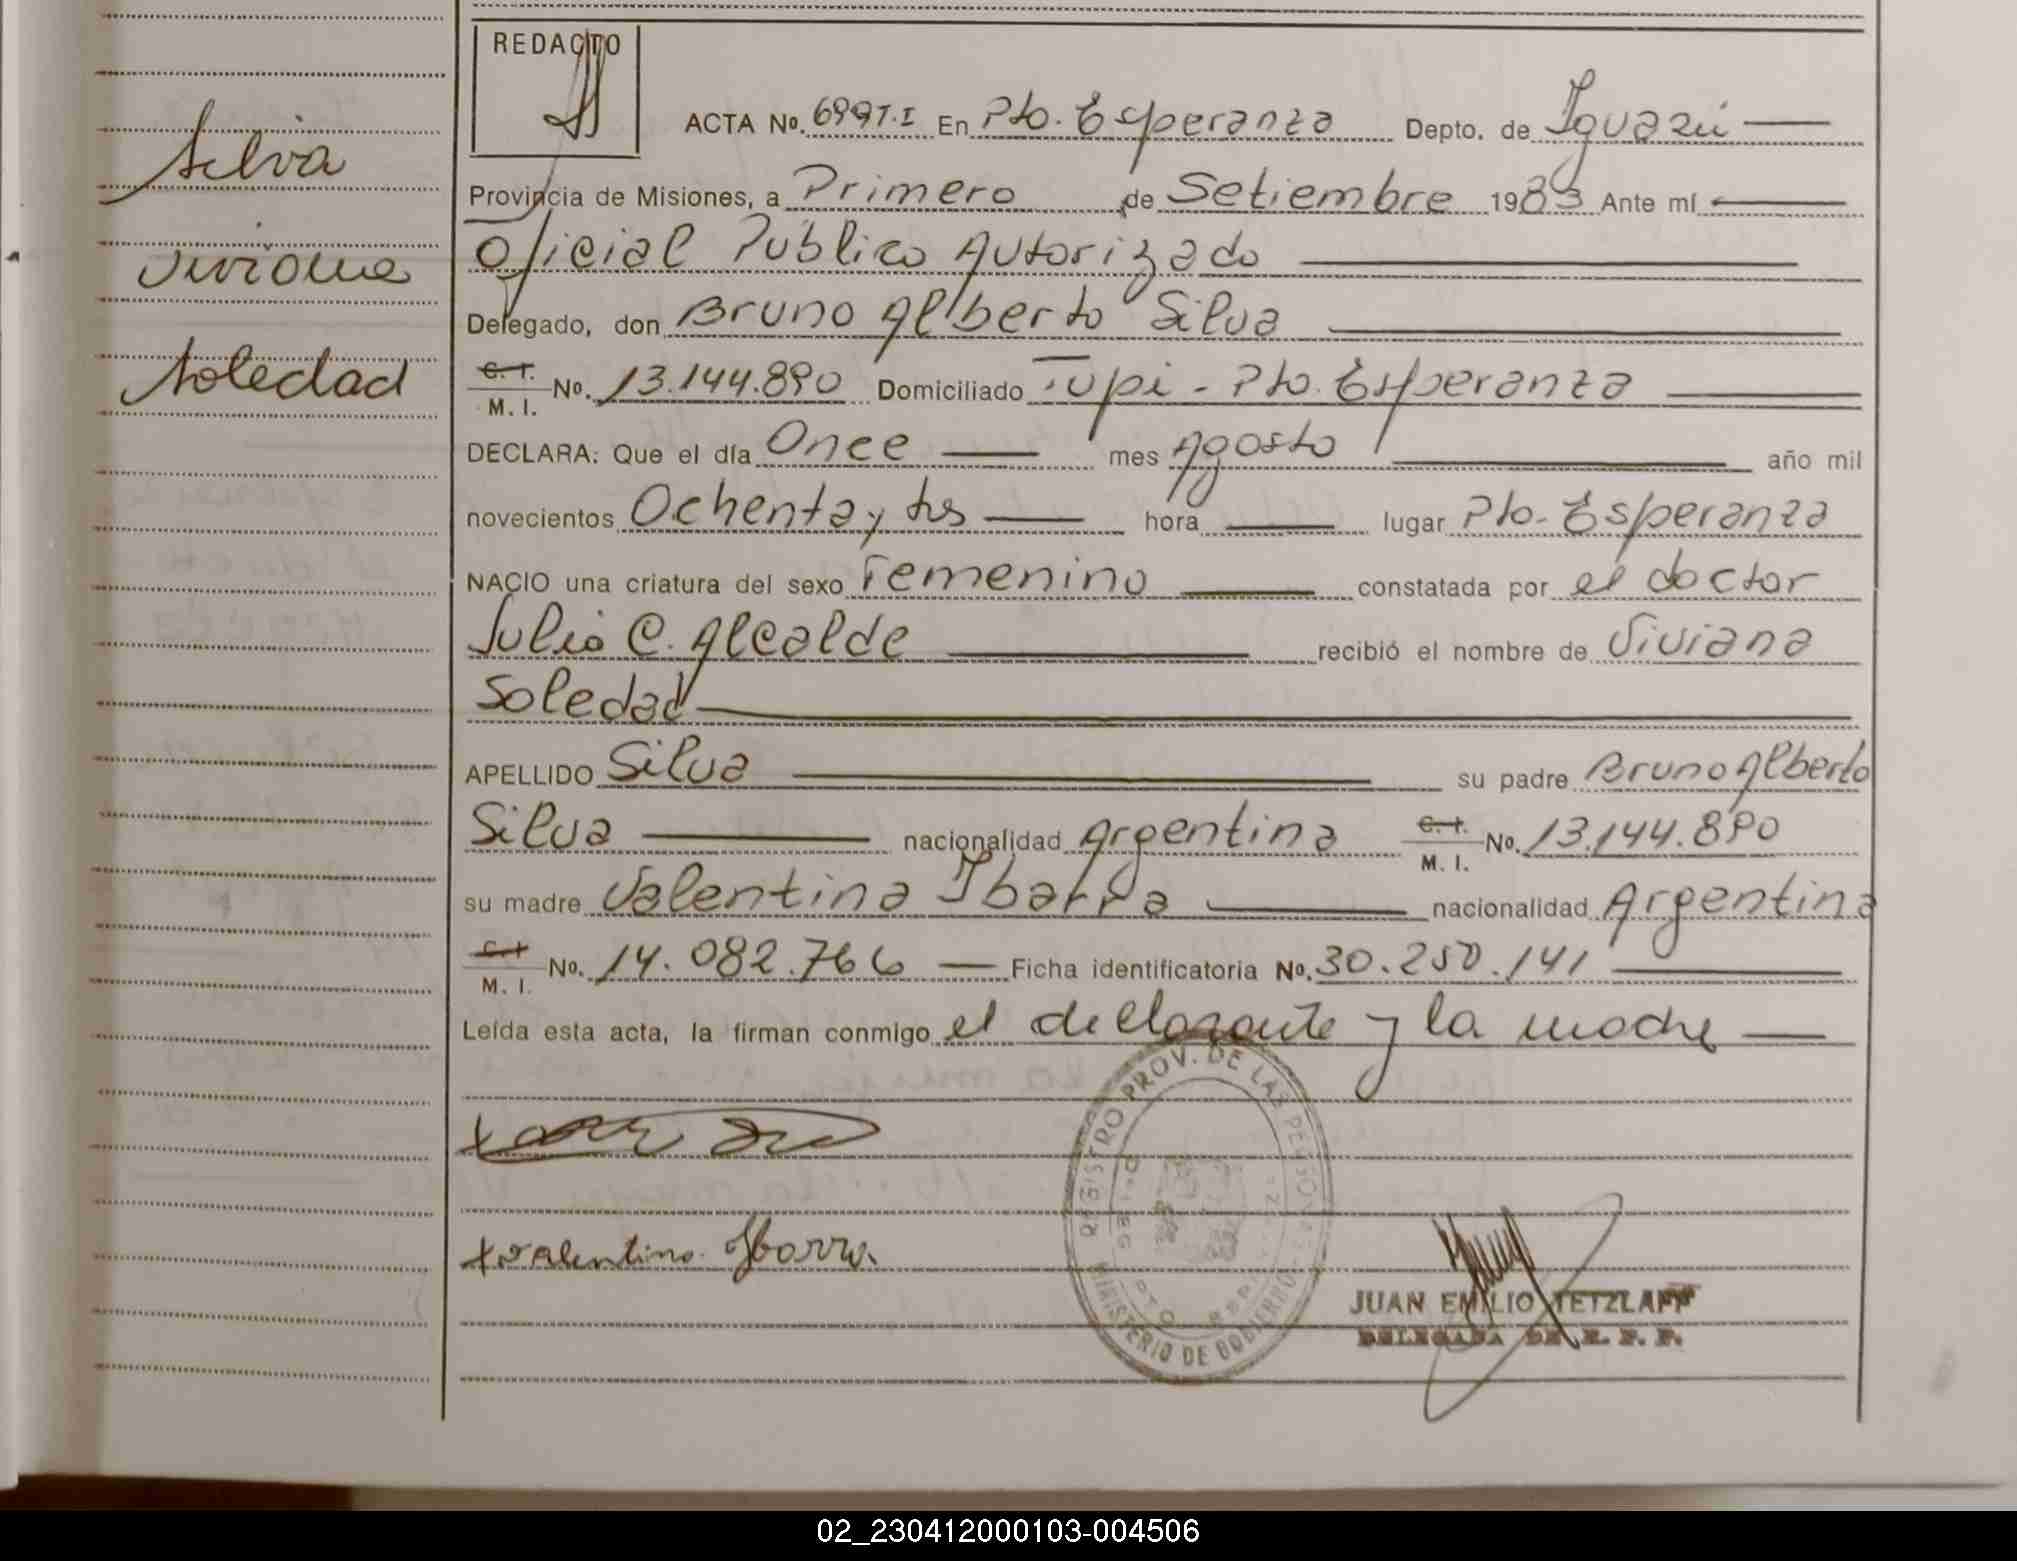 Silva
Viviana
Soledad
REDACTO
ACTA No. 699 T.I En Pto. Esperanza Depto. de Iguazú
Provincia de Misiones, a Primero de Setiembre 1983 Ante mí
Oficial Público Autorizado
Delegado, don Bruno Alberto Silva
C. I. M. I. No. 13.144.890 Domiciliado Tupi - Pto. Esperanza
DECLARA: Que el día Once mes Agosto año mil
novecientos Ochenta y tres hora lugar Pto. Esperanza
NACIO una criatura del sexo Femenino constatada por el doctor
Julio C. Alcalde recibió el nombre de Viviana
Soledad
APELLIDO Silva su padre Bruno Alberto
Silva nacionalidad Argentina C. I. M. I. No. 13.144.890
su madre Valentina Ibarra nacionalidad Argentina
C. I. M. I. No. 14.082.766 Ficha identificatoria No. 30.250.141
Leída esta acta, la firman conmigo el declarante y la madre
Valentina Ibarra
REGISTRO PROV. DE LAS PERSONAS
MINISTERIO DE GOBIERNO
JUAN EMILIO TETZLAFF
02_230412000103-004506